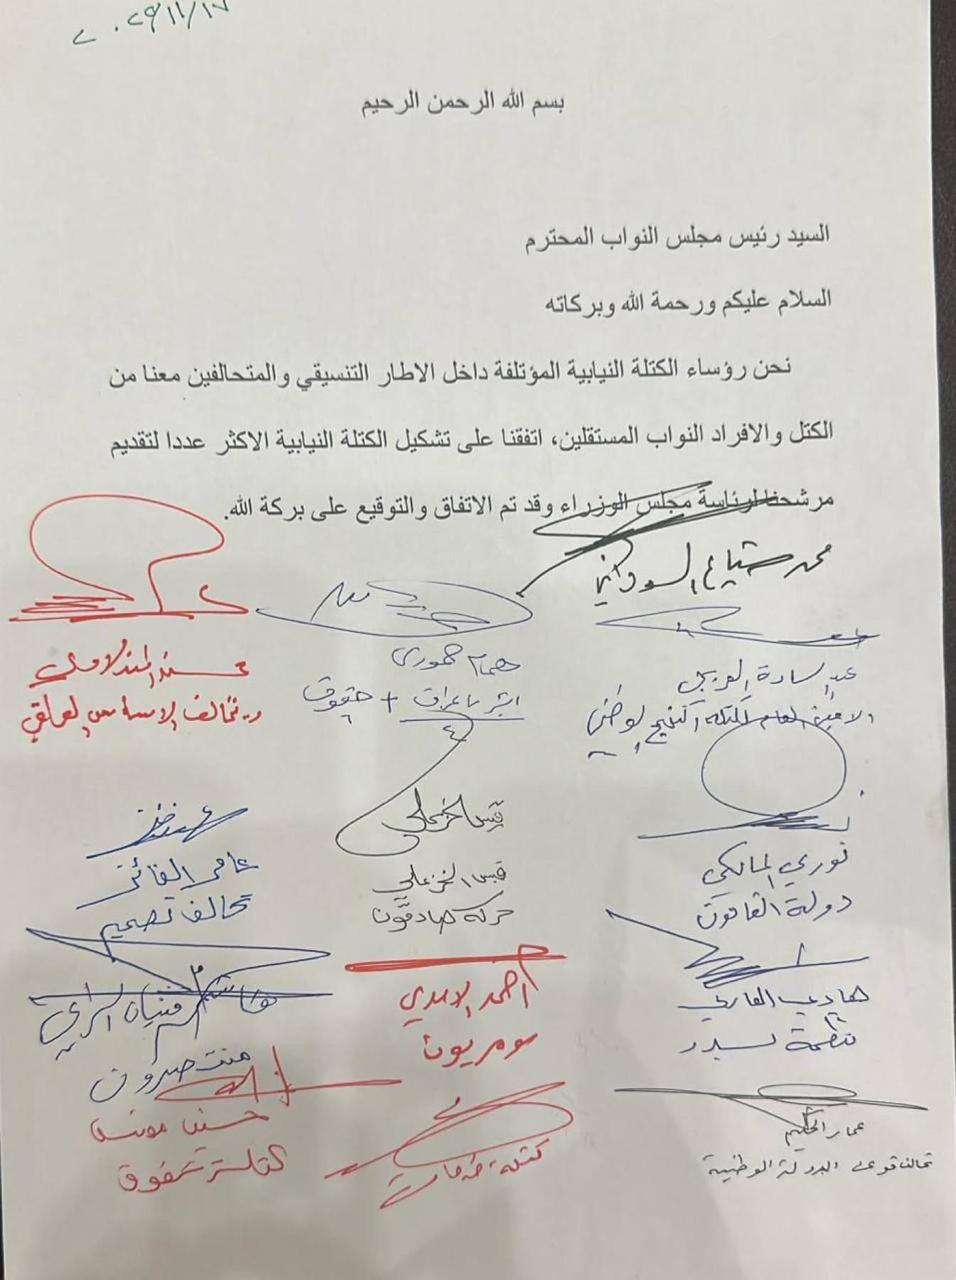 ٢٠٢٥/١١/١٧
بسم الله الرحمن الرحيم
السيد رئيس مجلس النواب المحترم
السلام عليكم ورحمة الله وبركاته
نحن رؤساء الكتلة النيابية المؤتلفة داخل الاطار التنسيقي والمتحالفين معنا من
الكتل والافراد النواب المستقلين، اتفقنا على تشكيل الكتلة النيابية الاكثر عددا لتقديم
مرشحنا لرئاسة مجلس الوزراء وقد تم الاتفاق والتوقيع على بركة الله.
محمد شياع السوداني
همام حمودي
ابشر يا عراق + حقوق
محسن المندلاوي
تحالف الاساس العراقي
الامين العام
نوري المالكي
دولة القانون
قيس الخزعلي
قيس الخزعلي
حركة صادقون
عامر الفائز
تحالف تصميم
هادي العامري
منظمة بدر
احمد الاسدي
سومريون
منتصرون
عمار الحكيم
تحالف قوى الدولة الوطنية
كتلة خدمات
حسين مونس